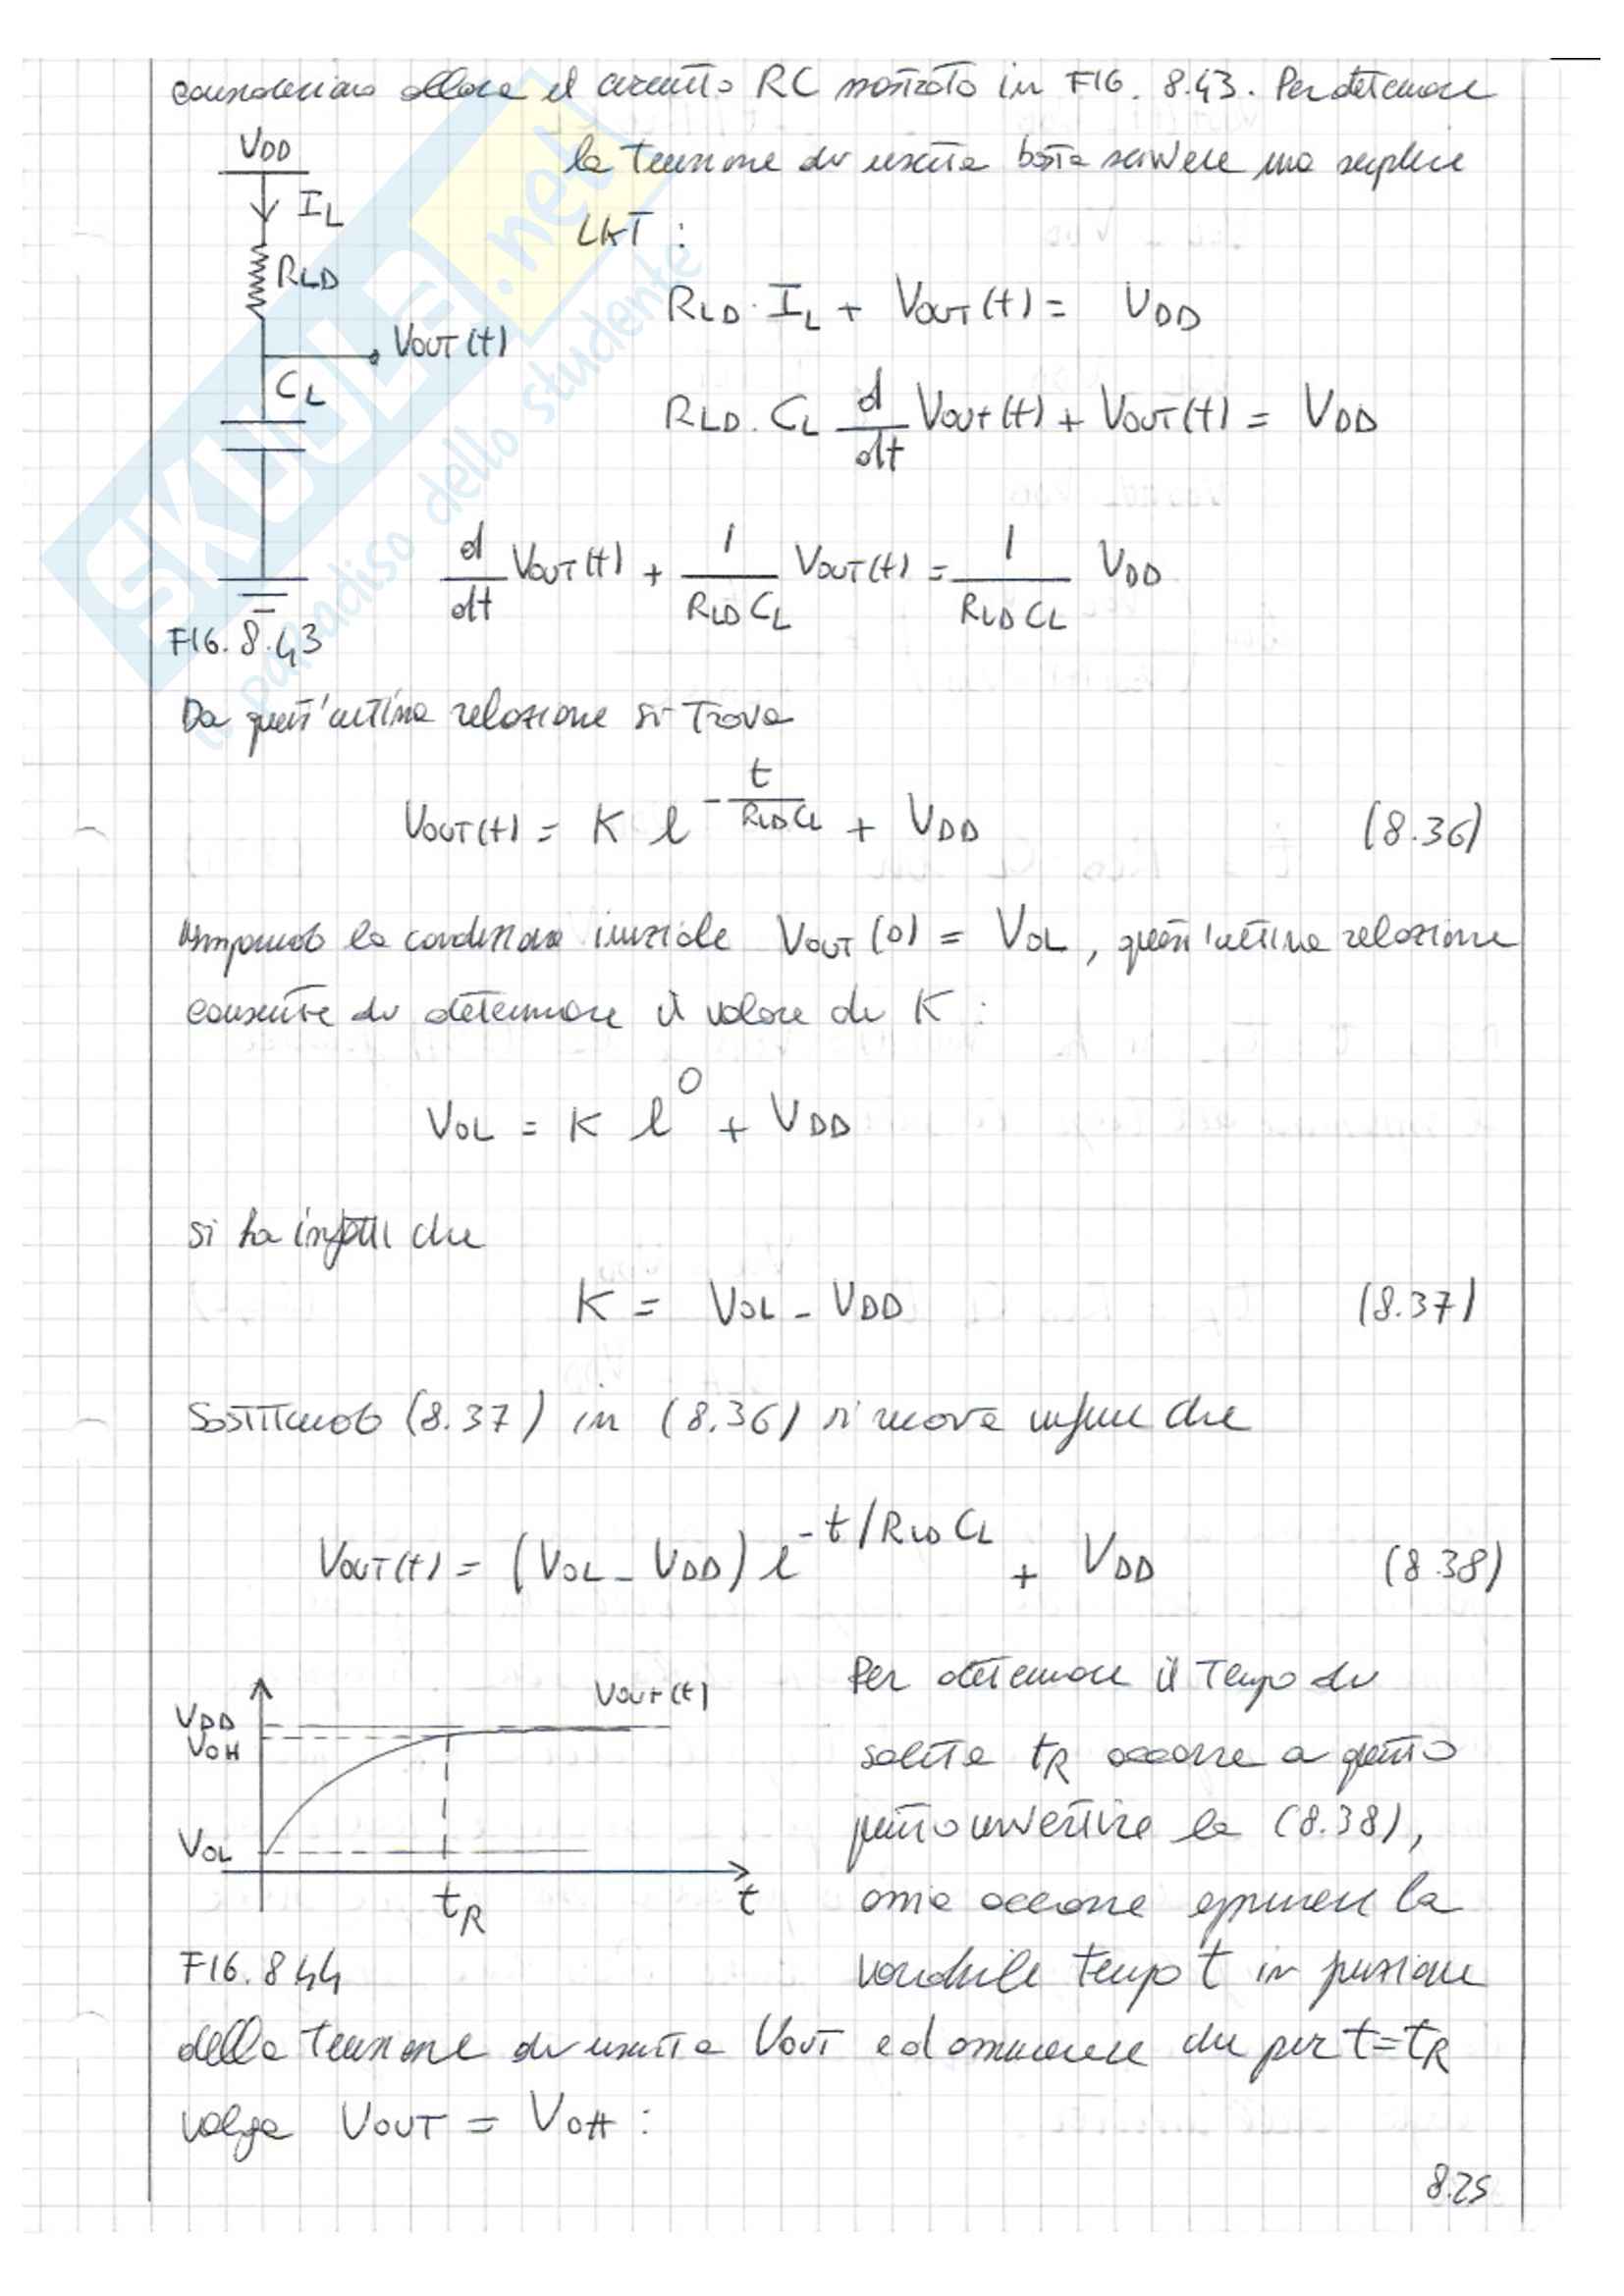 consideriamo allora il circuito RC mostrato in FIG. 8.43. Per determinare
la tensione di uscita basta scrivere una semplice
LKT :
VDD
IL
RLD
VOUT (t)
CL
FIG. 8.43
RLD · IL + VOUT (t) = VDD
RLD · CL d/dt VOUT (t) + VOUT (t) = VDD
d/dt VOUT (t) + 1/RLD CL VOUT (t) = 1/RLD CL VDD
Da quest'ultima relazione si trova
VOUT (t) = K e^-t/RLD CL + VDD (8.36)
Imponendo la condizione iniziale VOUT (0) = VOL, quest'ultima relazione
consente di determinare il valore di K :
VOL = K e^0 + VDD
si ha infatti che
K = VOL - VDD (8.37)
Sostituendo (8.37) in (8.36) si trova infine che
VOUT (t) = (VOL - VDD) e^-t/RLD CL + VDD (8.38)
VDD
VOH
VOL
VOUT (t)
tR
t
FIG. 8.44
Per determinare il tempo di
salita tR occorre a questo
punto invertire la (8.38),
ossia occorre esprimere la
variabile tempo t in funzione
della tensione di uscita VOUT ed che per t = tR
valga VOUT = VOH :
8.25
SKUOLA.net
il paradiso dello studente